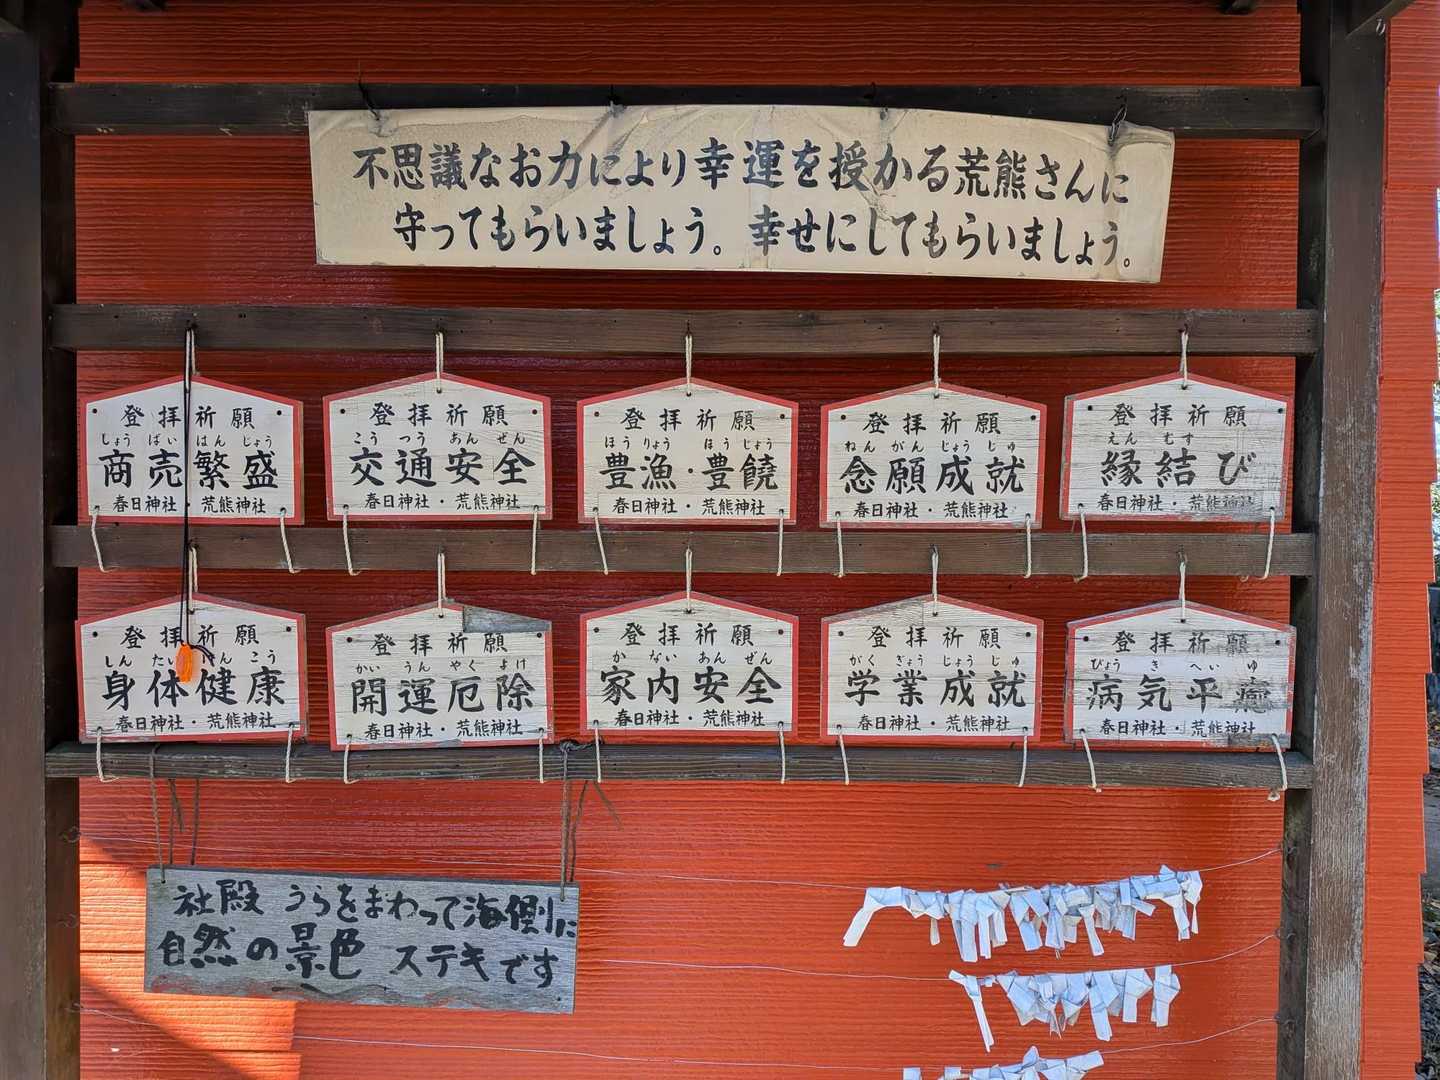 不思議なお力により幸運を授かる荒熊さんに
守ってもらいましょう。幸せにしてもらいましょう。
登拝祈願
しょう ばい はん じょう
商売繁盛
春日神社・荒熊神社
登拝祈願
こう つう あん ぜん
交通安全
春日神社・荒熊神社
登拝祈願
ほう りょう ほう じょう
豊漁・豊饒
春日神社・荒熊神社
登拝祈願
ねん がん じょう じゅ
念願成就
春日神社・荒熊神社
登拝祈願
えん むす
縁結び
春日神社・荒熊神社
登拝祈願
しん たい けん こう
身体健康
春日神社・荒熊神社
登拝祈願
かい うん やく よけ
開運厄除
春日神社・荒熊神社
登拝祈願
か ない あん ぜん
家内安全
春日神社・荒熊神社
登拝祈願
がく ぎょう じょう じゅ
学業成就
春日神社・荒熊神社
登拝祈願
びょう き へい ゆ
病気平癒
春日神社・荒熊神社
社殿 うらをまわって海側に
自然の景色 ステキです